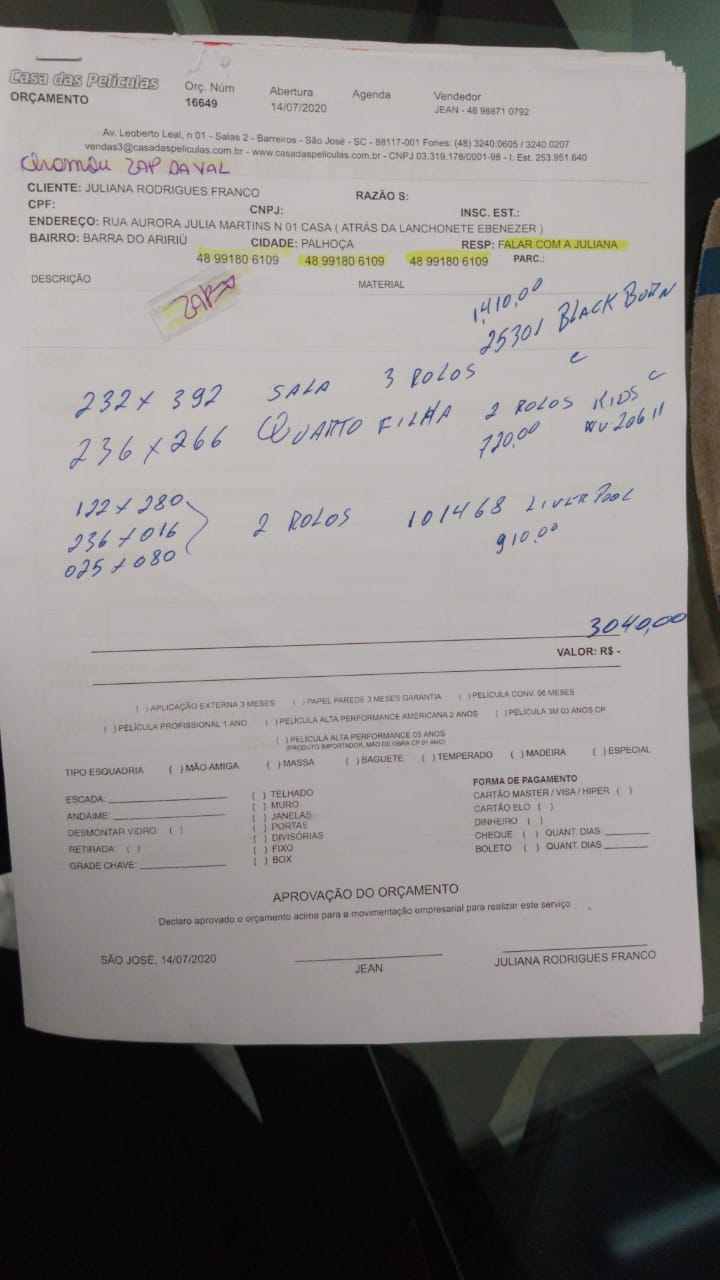 Casa das Películas
ORÇAMENTO
Orç. Núm
16649
Abertura
14/07/2020
Agenda
Vendedor
JEAN - 48 98871 0792
Av. Leoberto Leal, n 01 - Salas 2 - Barreiros - São José - SC - 88117-001 Fones: (48) 3240.0605 / 3240.0207
vendas3@casadaspeliculas.com.br - www.casadaspeliculas.com.br - CNPJ 03.319.178/0001-98 - I. Est. 253.951.640
Chamou ZAP DA VAL
CLIENTE: JULIANA RODRIGUES FRANCO RAZÃO S:
CPF: CNPJ: INSC. EST.:
ENDEREÇO: RUA AURORA JULIA MARTINS N 01 CASA ( ATRÁS DA LANCHONETE EBENEZER )
BAIRRO: BARRA DO ARIRIÚ CIDADE: PALHOÇA RESP: FALAR COM A JULIANA
48 99180 6109 48 99180 6109 48 99180 6109 PARC.:
DESCRIÇÃO MATERIAL
ZAP
1,410,00
25301 BLACK BURN
232 x 392 SALA 3 ROLOS C
236 x 266 QUARTO FILHA 2 ROLOS KIDS C
720,00
122 x 280
236 x 016 2 ROLOS 101468 LIVERPOOL
025 x 080 910,00
3040,00
VALOR: R$ -
( ) APLICAÇÃO EXTERNA 3 MESES ( ) PAPEL PAREDE 3 MESES GARANTIA ( ) PELÍCULA CONV. 06 MESES
( ) PELÍCULA PROFISSIONAL 1 ANO ( ) PELÍCULA ALTA PERFORMANCE AMERICANA 2 ANOS ( ) PELÍCULA 3M 03 ANOS CP
( ) PELÍCULA ALTA PERFORMANCE 05 ANOS
(PRODUTO IMPORTADOR, MÃO DE OBRA CP 01 ANO)
TIPO ESQUADRIA ( ) MÃO AMIGA ( ) MASSA ( ) BAGUETE ( ) TEMPERADO ( ) MADEIRA ( ) ESPECIAL
ESCADA:
ANDAIME:
DESMONTAR VIDRO ( )
RETIRADA: ( )
GRADE CHAVE:
( ) TELHADO
( ) MURO
( ) JANELAS
( ) PORTAS
( ) DIVISÓRIAS
( ) FIXO
( ) BOX
FORMA DE PAGAMENTO
CARTÃO MASTER / VISA / HIPER ( )
CARTÃO ELO ( )
DINHEIRO ( )
CHEQUE ( ) QUANT. DIAS.
BOLETO ( ) QUANT. DIAS
APROVAÇÃO DO ORÇAMENTO
Declaro aprovado o orçamento acima para a movimentação empresarial para realizar este serviço
SÃO JOSÉ, 14/07/2020
JEAN
JULIANA RODRIGUES FRANCO